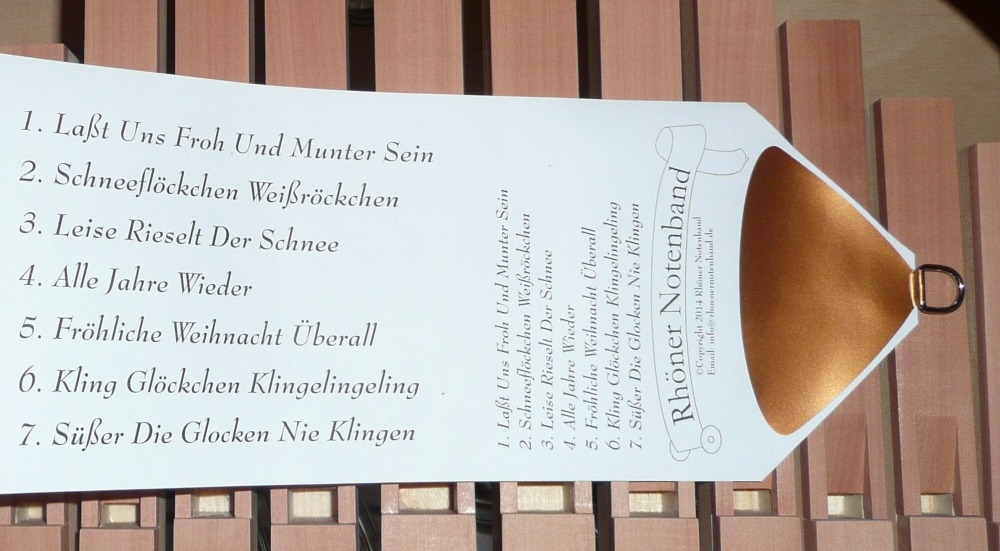 1. Laßt Uns Froh Und Munter Sein
2. Schneeflöckchen Weißröckchen
3. Leise Rieselt Der Schnee
4. Alle Jahre Wieder
5. Fröhliche Weihnacht Überall
6. Kling Glöckchen Klingelingeling
7. Süßer Die Glocken Nie Klingen
1. Laßt Uns Froh Und Munter Sein
2. Schneeflöckchen Weißröckchen
3. Leise Rieselt Der Schnee
4. Alle Jahre Wieder
5. Fröhliche Weihnacht Überall
6. Kling Glöckchen Klingelingeling
7. Süßer Die Glocken Nie Klingen
Rhöner Notenband
©Copyright 2014 Rhöner Notenband
Email: info@rhoenernotenband.de